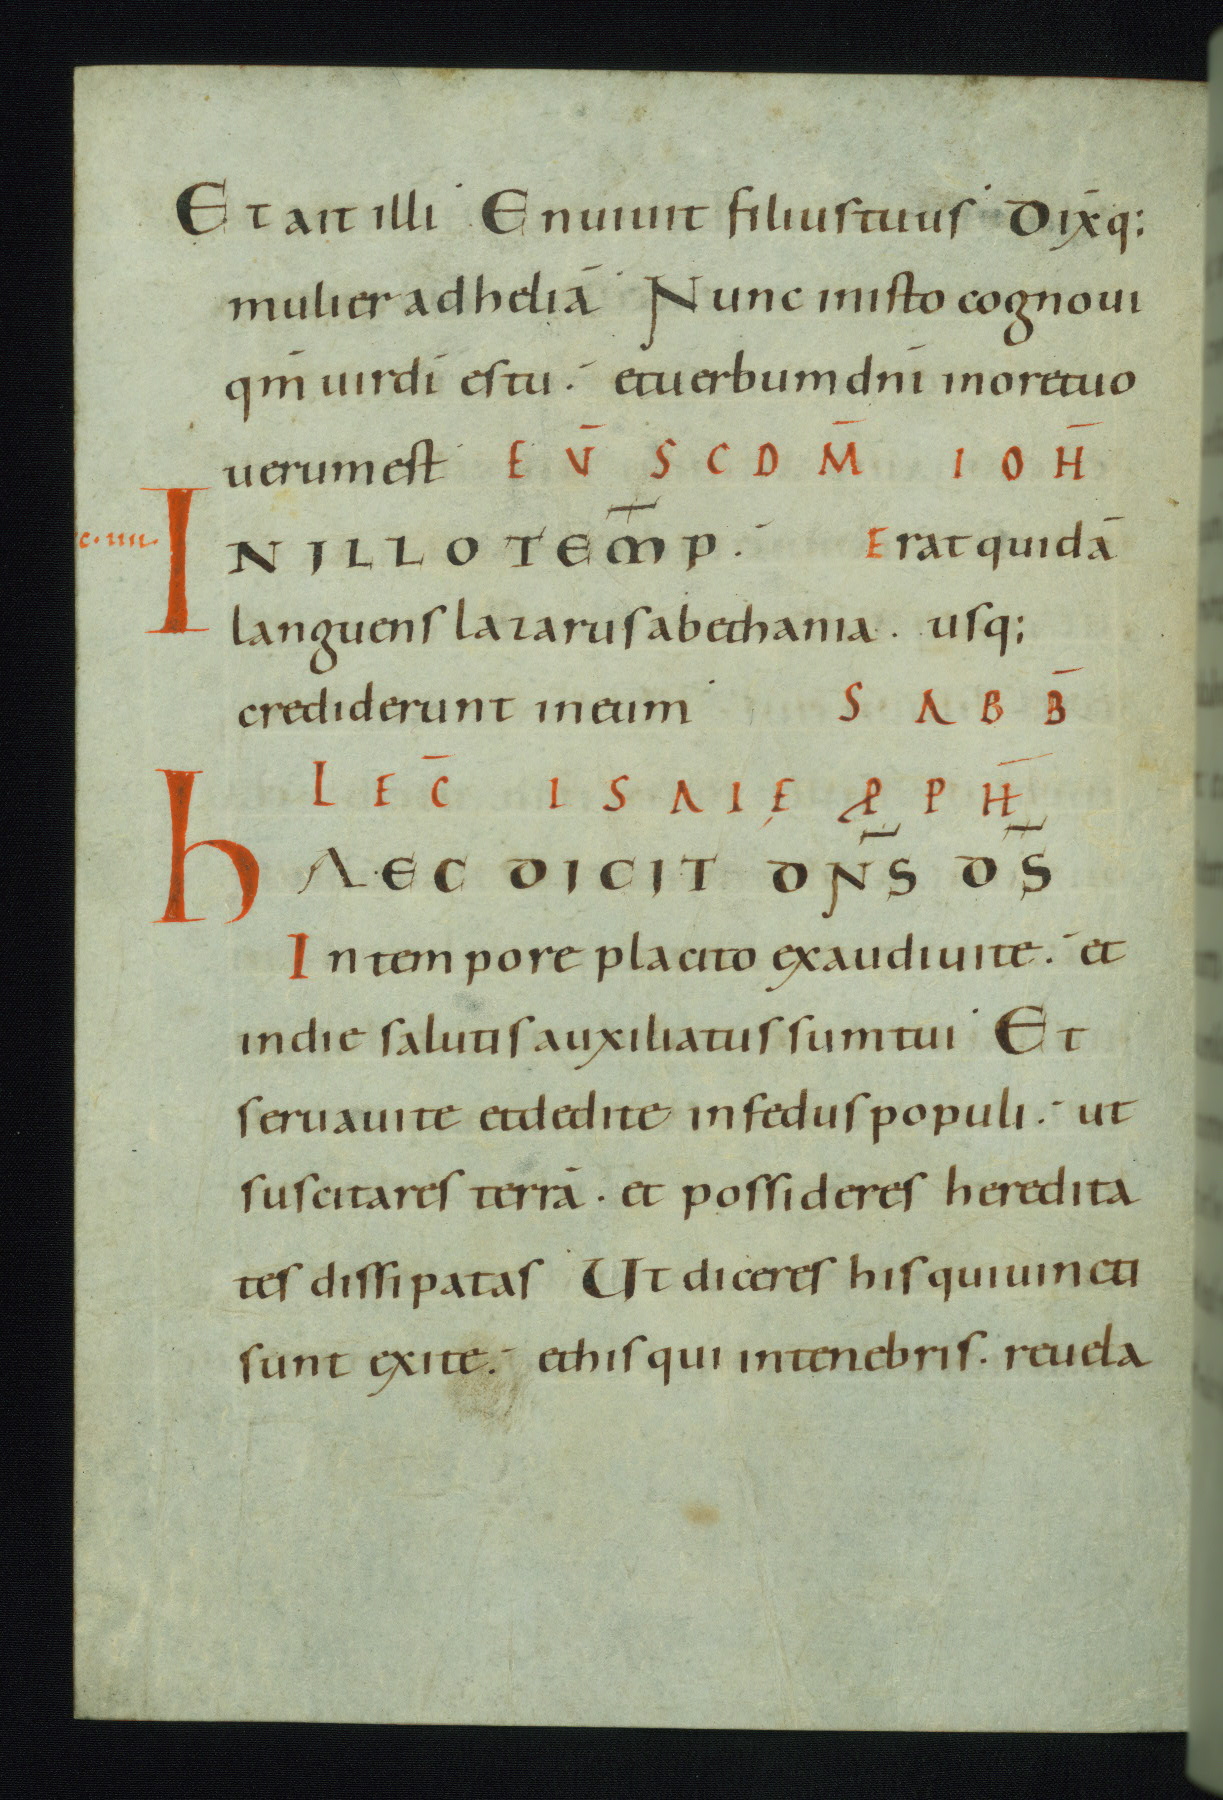 Et ait illi En uiuit filius tuus Dix̄q;
mulier ad heliā Nunc in isto cognoui
qm̄ uir dī es tu. et uerbum dnī in ore tuo
uerum est EV̄ SCDM̄ IOH̄
c. IIII. IN ILLO TEM̄P. Erat quidā
languens lazarus a bethania. usq;
crediderunt in eum SABB̄
LEC̄ ISAIĘ PPH̄
hAEC DICIT DN̄S DS̄
In tempore placito exaudiui te. et
in die salutis auxiliatus sum tui Et
seruaui te et dedi te in fedus populi. ut
suscitares terrā. et possideres heredita
tes dissipatas Ut diceres his qui uincti
sunt exite. et his qui in tenebris. reuela